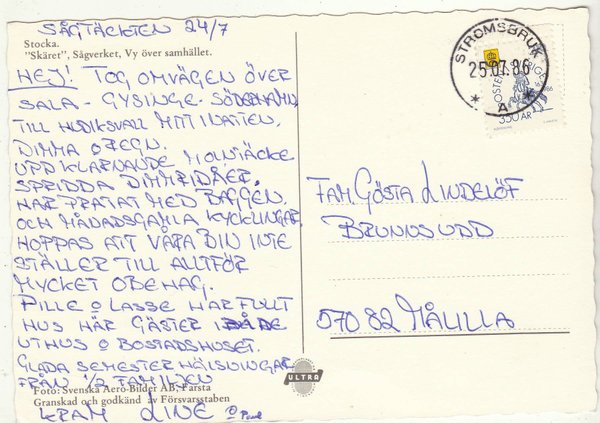 SÅGTÄCKTEN 24/7
Stocka.
"Skäret", Sågverket, Vy över samhället.
HEJ! TOG OMVÄGEN ÖVER
SALA - GYSINGE - SÖDERHAMN
TILL HUDIKSVALL MITT I NATTEN.
DIMMA O REGN.
UPPKLARNANDE MOLNTÄCKE
SPRIDDA DIMMRIDÅER.
HAR PRATAT MED BAGGEN.
OCH MÅNADSGAMLA KYCKLINGAR
HOPPAS ATT VÅRA BIN INTE
STÄLLER TILL ALLTFÖR
MYCKET OBEHAG.
PILLE O LASSE HAR FULLT
HUS HÄR GÄSTER I BÅDE
UTHUS O BOSTADSHUSET.
GLADA SEMESTERHÄLSNINGAR
FRÅN 1/2 FAMILJEN
Foto: Svenska Aero-Bilder AB, Farsta
Granskad och godkänd av Försvarsstaben
KRAM LINE O
ULTRA
STRÖMSBRUK
25.07.86
* A *
350 ÖRE
FAM. GÖSTA LINDELÖF
BRUNNSUDD
570 82 MÅLILLA